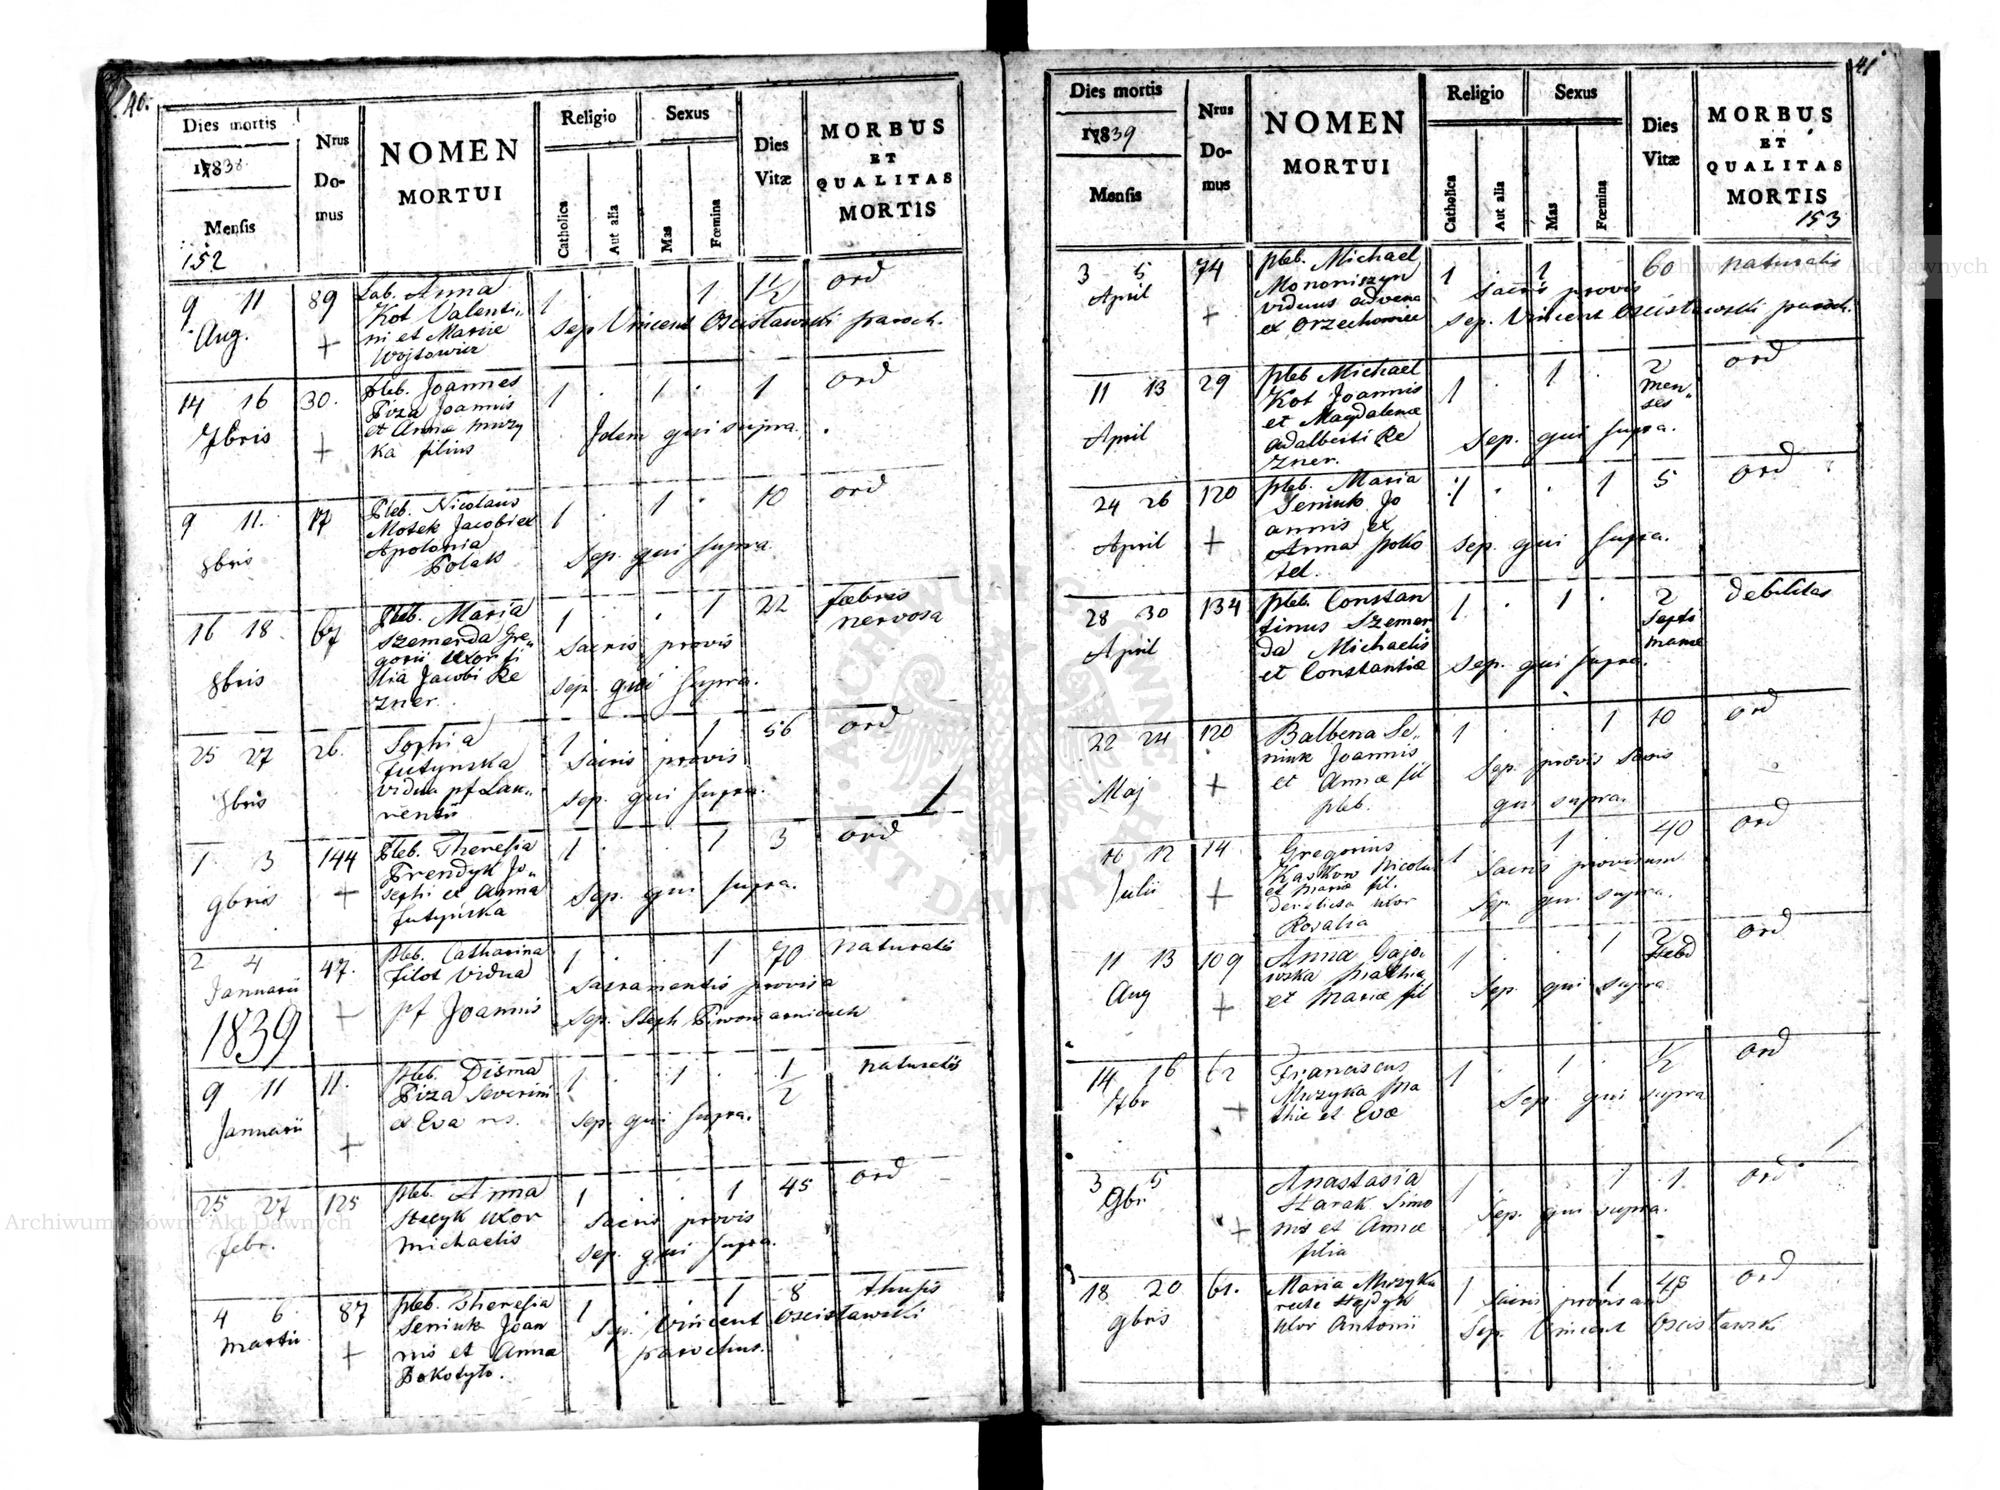 40.
Dies mortis
1838
Mensis
152
Nrus
Do-
mus
NOMEN
MORTUI
Religio
Catholica
Aut alia
Sexus
Mas
Fœmina
Dies
Vitæ
MORBUS
ET
QUALITAS
MORTIS
9 11 89 Lab. Anna 1 . . 1 1½ ord
Aug. Kot Valenti
ni et Mariæ
Wojtowicz
Sep. Vincent Oscistawski paroch.
14 16 30. pleb. Joannes 1 . 1 . 1 ord
7bris Piza Joannis
et Annæ Muzy
ka filius
Idem qui supra.
9 11. 17 Pleb. Nicolaus 1 . 1 . 10 ord
8bris Motek Jacobi ex
Apolonia
Polak
Sep. qui supra.
16 18. 67 Pleb. Maria 1 . . 1 22 febris
nervosa
8bris Szemerda Gre„
gorii uxor fi
lia Jacobi Re
zner.
Sacris provis
sep. qui supra.
25 27 26. Sophia 1 . . 1 56 ord
8bris Futynska
vidua pf Lau„
rentii
Sacris provis
sep. qui supra.
1 3 144 Pleb. Theresia 1 . . 1 3 ord
9bris Prendyk Jo„
sephi et Anna
Futyńska
Sep. qui supra.
2 4 47. pleb. Catharina 1 . . 1 70 naturalis
Januarii Filot vidua
pf Joannis
1839
Sacramentis provisa
Sep. Steph. Piwowarniczek
9 11 11. pleb. Disma 1 . 1 . 1/2 naturalis
Januarii Piza Severini
et Eva
Sep. qui supra.
25 27 125 pleb. Anna 1 . . 1 45 ord
febr. Stecyk uxor
Michaelis
Sacris provis
sep. qui supra.
4 6. 87 pleb. Theresia 1 . . 1 8 thusis
Martii Seniuk Joan
nis et Anna
Pokotyło.
Sep. Vincent Oscistawski
parochus.
41
Dies mortis
1839
Mensis
Nrus
Do-
mus
NOMEN
MORTUI
Religio
Catholica
Aut alia
Sexus
Mas
Fœmina
Dies
Vitæ
MORBUS
ET
QUALITAS
MORTIS
153
3 5 74 pleb. Michael 1 . 1 60 naturalis
April Mononiszyn
viduus advena
ex Orzechowice
Sacris provis
Sep. Vincent Oscistawski paroch.
11 13 29 pleb Michael 1 . 1 . 2
men„
ses ord
April Kot Joannis
et Magdalenæ
Adalberti Re
zner.
Sep. qui supra.
24 26 120 pleb. Maria 1 . . 1 5 ord
April Seniuk Jo
annis ex
Anna
Sep. qui supra.
28 30 134 pleb. Constan 1 . 1 . 2
Septi
manæ debilitas
April tinus Szemer
da Michaelis
et Constantiæ
Sep. qui supra.
22 24 120 Balbena Se„ 1 . . 1 10 ord
Maj niuk Joannis
et Annæ fil
pleb.
Sep. provis sacris
qui supra.
10 12 14. Gregorius 1 . 1 . 40 ord
Julii Kaskow Nicolai
et Mariæ fil.
derelicta uxor
Rosalia
Sacris provisum
Sep. qui supra.
11 13 109 Anna Gajo„ 1 . . 1 2
Hebd ord
Aug wska Mathia
et Mariæ fil
Sep. qui supra
14 16 62 Franciscus 1 . 1 . ½ ord
7br Muzyka Ma
thiæ et Evæ
Sep. qui supra
3 5 Anastasia 1 . . 1 1. ord
9br. Starak Simo
nis et Annæ
filia
Sep. qui supra.
18 20 61. Maria Muzyka 1 . . 1 48 ord
9bris recte Hajdyk
uxor Antonii
Sacris provisa
Sep. Vincent Oscistawski
Archiwum Główne Akt Dawnych
Archiwum Główne Akt Dawnych
ARCHIWUM GŁÓWNE AKT DAWNYCH